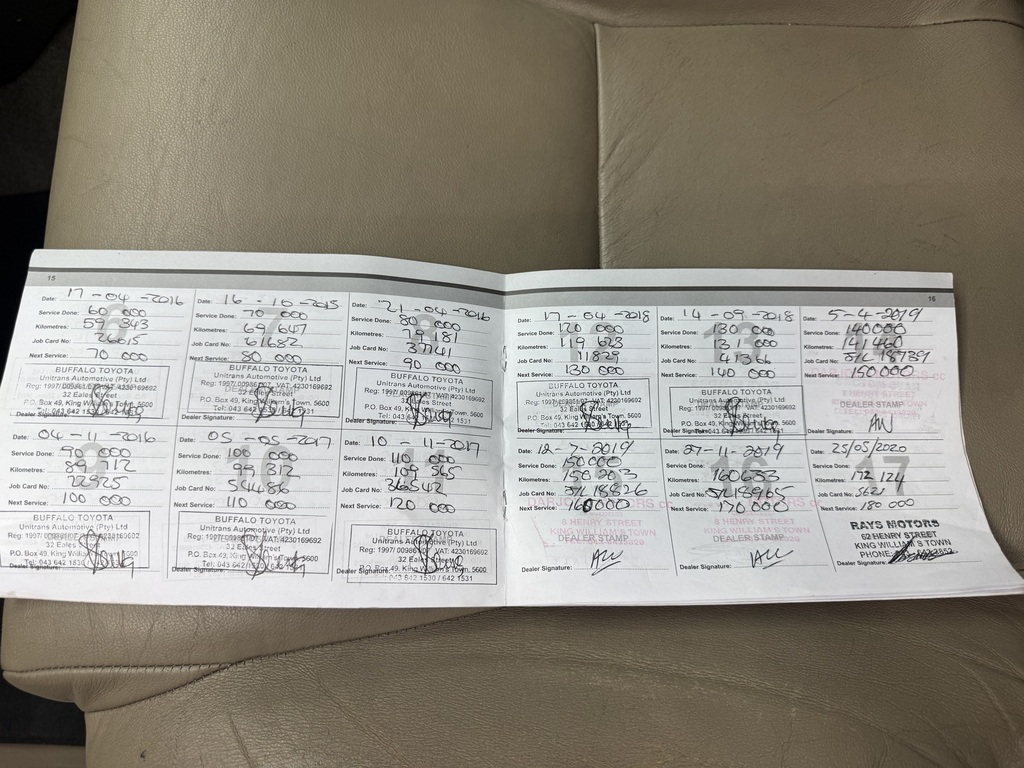 15
Date: 17-04-2016
Service Done: 60 000
Kilometres: 59 343
Job Card No: 26615
Next Service: 70 000
BUFFALO TOYOTA
Unitrans Automotive (Pty) Ltd
32 Eales Street
P.O. Box 49, King William's Town, 5600
Dealer Signature:
Date: 16-10-2015
Service Done: 70 000
Kilometres: 69 647
Job Card No: 61682
Next Service: 80 000
BUFFALO TOYOTA
Unitrans Automotive (Pty) Ltd
Reg: 1997/ VAT: 4230169692
32 Eales Street
P.O. Box 49, King William's Town, 5600
Dealer Signature:
8
Date: 21-04-2016
Service Done: 80 000
Kilometres: 79 181
Job Card No: 37741
Next Service: 90 000
BUFFALO TOYOTA
Unitrans Automotive (Pty) Ltd
VAT: 4230169692
32 Eales Street
P.O. Box 49, King William's Town, 5600
Dealer Signature:
9
Date: 04-11-2016
Service Done: 90 000
Kilometres: 89 712
Job Card No: 22925
Next Service: 100 000
BUFFALO TOYOTA
Unitrans Automotive (Pty) Ltd
VAT: 4230169692
32 Eales Street
P.O. Box 49, King William's Town, 5600
Dealer Signature:
Date: 05-05-2017
Service Done: 100 000
Kilometres: 99 312
Job Card No: 54486
Next Service: 110 000
BUFFALO TOYOTA
Unitrans Automotive (Pty) Ltd
VAT: 4230169692
32 Eales Street
P.O. Box 49, King William's Town, 5600
Dealer Signature:
Date: 10-11-2017
Service Done: 110 000
Kilometres: 109 565
Job Card No: 36542
Next Service: 120 000
BUFFALO TOYOTA
Unitrans Automotive (Pty) Ltd
VAT: 4230169692
32 Eales Street
P.O. Box 49, King William's Town, 5600
Tel: 043 642 1530 / 642 1531
Dealer Signature:
16
Date: 17-04-2018
Service Done: 120 000
Kilometres: 119 623
Job Card No: 11829
Next Service: 130 000
BUFFALO TOYOTA
Unitrans Automotive (Pty) Ltd
VAT: 4230169692
32 Eales Street
P.O. Box 49, King William's Town, 5600
Dealer Signature:
Date: 14-09-2018
Service Done: 130 000
Kilometres: 131 000
Job Card No: 41366
Next Service: 140 000
BUFFALO TOYOTA
Unitrans Automotive (Pty) Ltd
VAT: 4230169692
32 Eales Street
P.O. Box 49, King William's Town, 5600
Dealer Signature:
Date: 5-4-2019
Service Done: 140000
Kilometres: 141460
Job Card No:
Next Service: 150000
DEALER STAMP
Dealer Signature:
Date: 12-7-2019
Service Done: 150000
Kilometres: 150203
Job Card No:
Next Service: 160000
8 HENRY STREET
KING WILLIAM'S TOWN
DEALER STAMP
Dealer Signature:
16
Date: 27-11-2019
Service Done:
Kilometres: 160683
Job Card No:
Next Service: 170000
8 HENRY STREET
KING WILLIAM'S TOWN
DEALER STAMP
Dealer Signature:
17
Date: 25/05/2020
Service Done:
Kilometres: 172 124
Job Card No: 5621
Next Service: 180 000
RAYS MOTORS
62 HENRY STREET
KING WILLIAM'S TOWN
PHONE:
Dealer Signature: